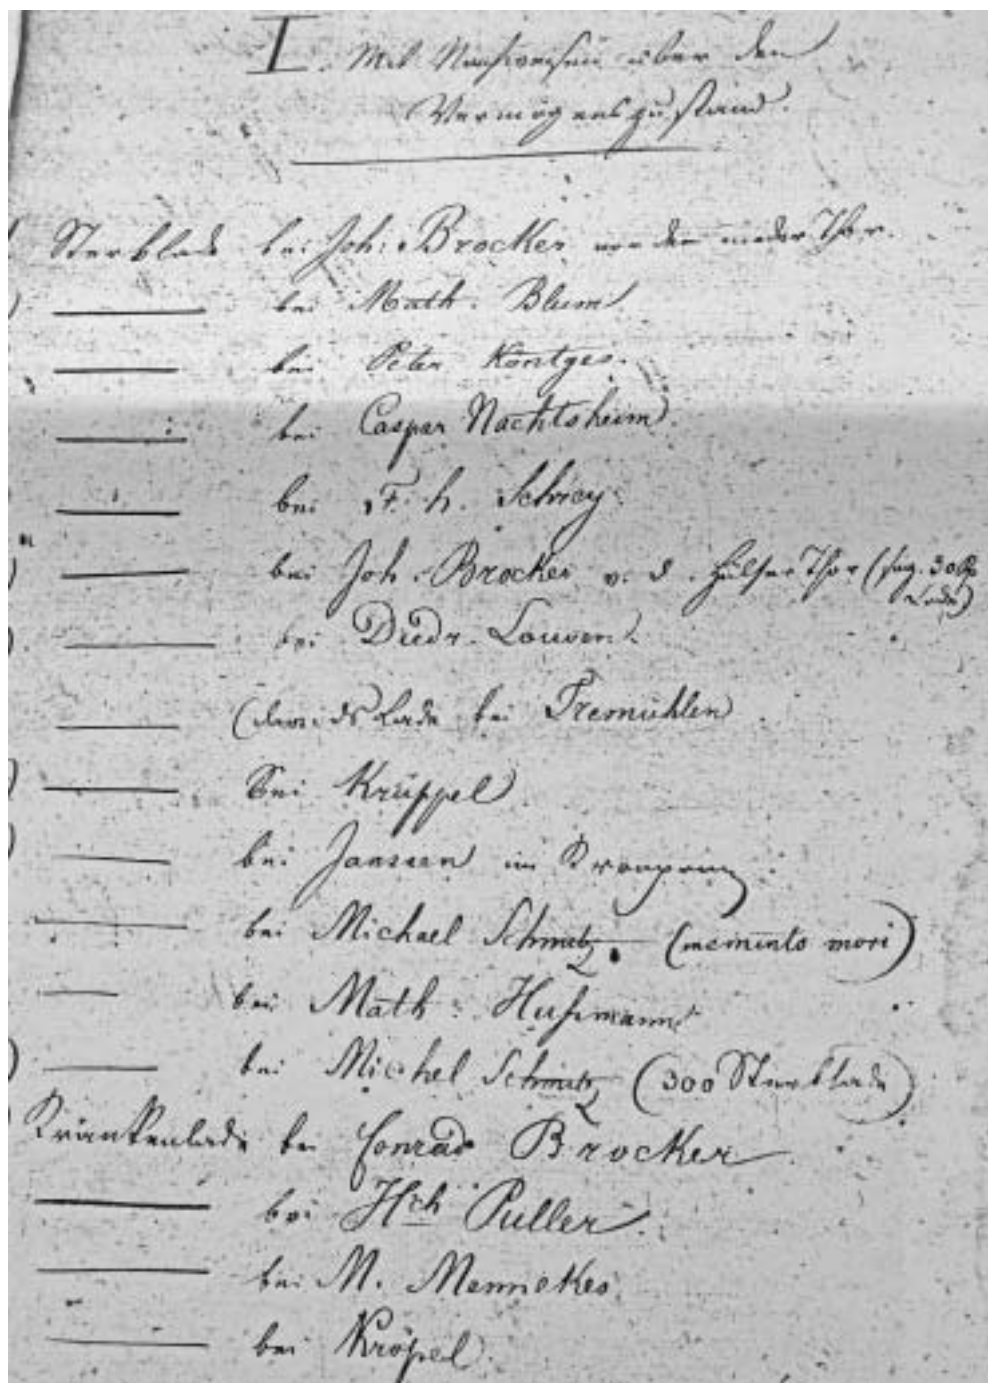 I. Mit Nachweisen über den
Vermögenszustand.
Sterblade bei Joh: Brocker vor dem nieder Thor.
bei Math. Blum
bei Peter Köntges.
bei Caspar Nachtsheim.
bei F. h. Schrey.
bei Joh. Brocker v. d. Hülser Thor (sog. 30
Lade)
bei Diedr. Louven.
(Davids Lade bei Tremühlen
bei Krüppel
bei Janssen im Kronprinz
bei Michael Schmitz. (memento mori)
bei Math: Hußmann
bei Michel Schmitz (300 Sterblade)
Krankenlade bei Conrad Brocker.
bei Hch Puller.
bei M. Mennekes.
bei Kröpel.